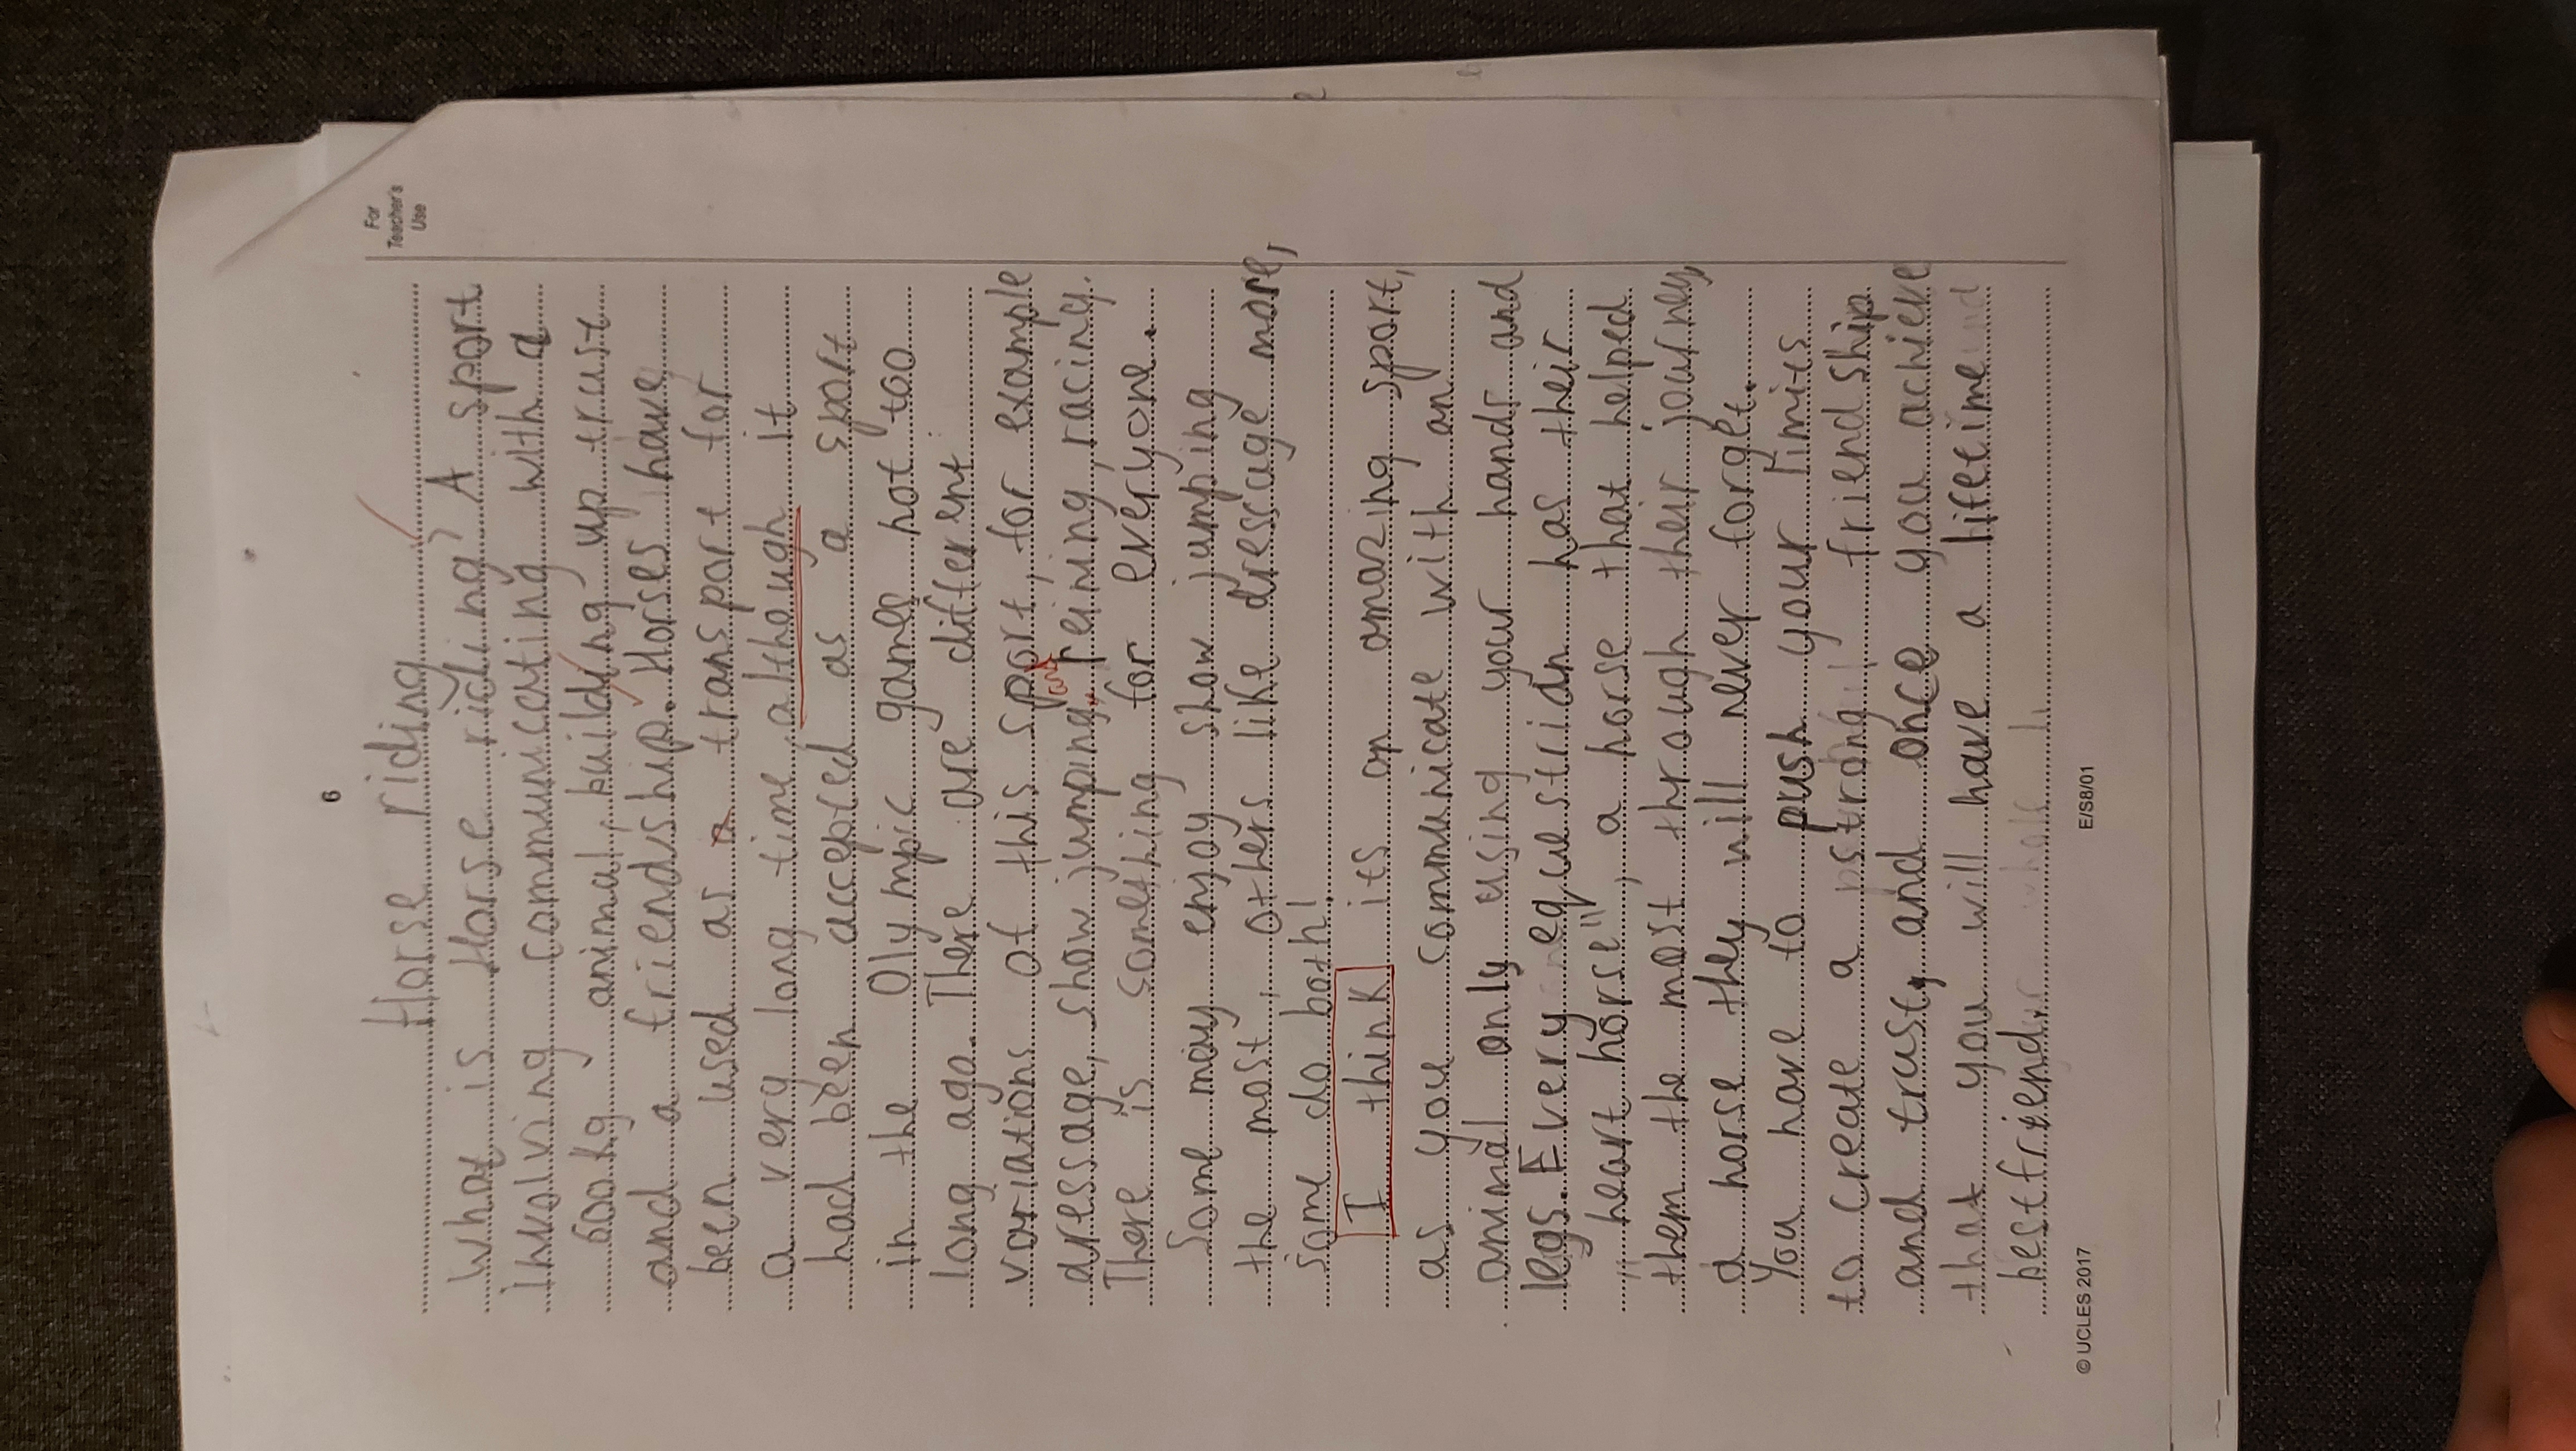 6
For
Teacher's
Use
Horse riding
What is Horse riding? A sport
involving communicating with a
600 kg animal, building up trust
and a friendship. Horses have
been used as a transport for
a very long time, although it
had been accepted as a sport
in the Olympic games not too
long ago. There are different
variations of this sport, for example
and
dressage, show jumping, reining, racing.
There is something for everyone.
Some may enjoy show jumping
the most, others like dressage more,
some do both!
I think its an amazing sport,
as you communicate with an
animal only using your hands and
legs. Every equestrian has their
„heart horse", a horse that helped
them the most through their journey,
a horse they will never forget.
You have to push your limits
to create a strong friendship
and trust, and once you achieve
that you will have a lifetime
bestfriend.
© UCLES 2017
E/S8/01